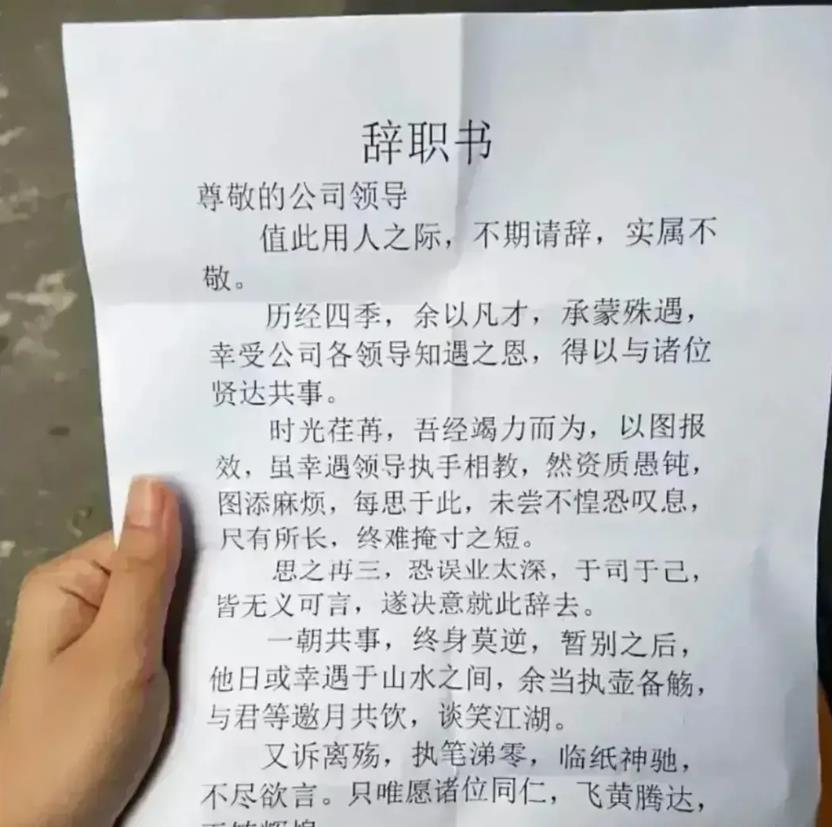 辞职书
尊敬的公司领导
值此用人之际，不期请辞，实属不
敬。
历经四季，余以凡才，承蒙殊遇，
幸受公司各领导知遇之恩，得以与诸位
贤达共事。
时光荏苒，吾经竭力而为，以图报
效，虽幸遇领导执手相教，然资质愚钝，
图添麻烦，每思于此，未尝不惶恐叹息，
尺有所长，终难掩寸之短。
思之再三，恐误业太深，于司于己，
皆无义可言，遂决意就此辞去。
一朝共事，终身莫逆，暂别之后，
他日或幸遇于山水之间，余当执壶备觞，
与君等邀月共饮，谈笑江湖。
又诉离殇，执笔涕零，临纸神驰，
不尽欲言。只唯愿诸位同仁，飞黄腾达，